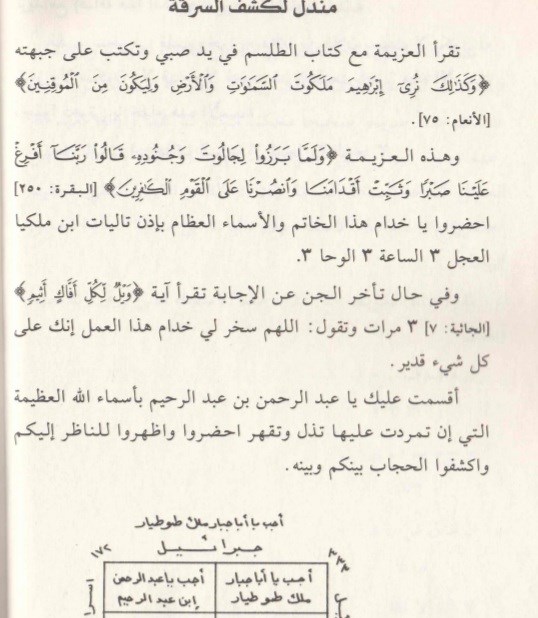 مندل لكشف السرقة
تقرأ العزيمة مع كتاب الطلسم في يد صبي وتكتب على جبهته
﴿وَكَذَلِكَ نُرِىٓ إِبْرَٰهِيمَ مَلَكُوتَ ٱلسَّمَٰوَٰتِ وَٱلْأَرْضِ وَلِيَكُونَ مِنَ ٱلْمُوقِنِينَ﴾
[الأنعام: ٧٥].
وهذه العزيمة ﴿وَلَمَّا بَرَزُوا۟ لِجَالُوتَ وَجُنُودِهِۦ قَالُوا۟ رَبَّنَآ أَفْرِغْ
عَلَيْنَا صَبْرًا وَثَبِّتْ أَقْدَامَنَا وَٱنصُرْنَا عَلَى ٱلْقَوْمِ ٱلْكَٰفِرِينَ﴾ [البقرة: ٢٥٠]
احضروا يا خدام هذا الخاتم والأسماء العظام بإذن تاليات ابن ملكيا
العجل ٣ الساعة ٣ الوحا ٣.
وفي حال تأخر الجن عن الإجابة تقرأ آية ﴿وَيْلٌ لِّكُلِّ أَفَّاكٍ أَثِيمٍ﴾
[الجاثية: ٧] ٣ مرات وتقول: اللهم سخر لي خدام هذا العمل إنك على
كل شيء قدير.
أقسمت عليك يا عبد الرحمن بن عبد الرحيم بأسماء الله العظيمة
التي إن تمردت عليها تذل وتقهر احضروا واظهروا للناظر إليكم
واكشفوا الحجاب بينكم وبينه.
أجب يا أبا جبار ملك طوطيار
جبرائيل
١٧٢
٣٣٨
أجب يا أبا جبار
ملك طوطيار
أجب يا عبد الرحمن
إبن عبد الرحيم